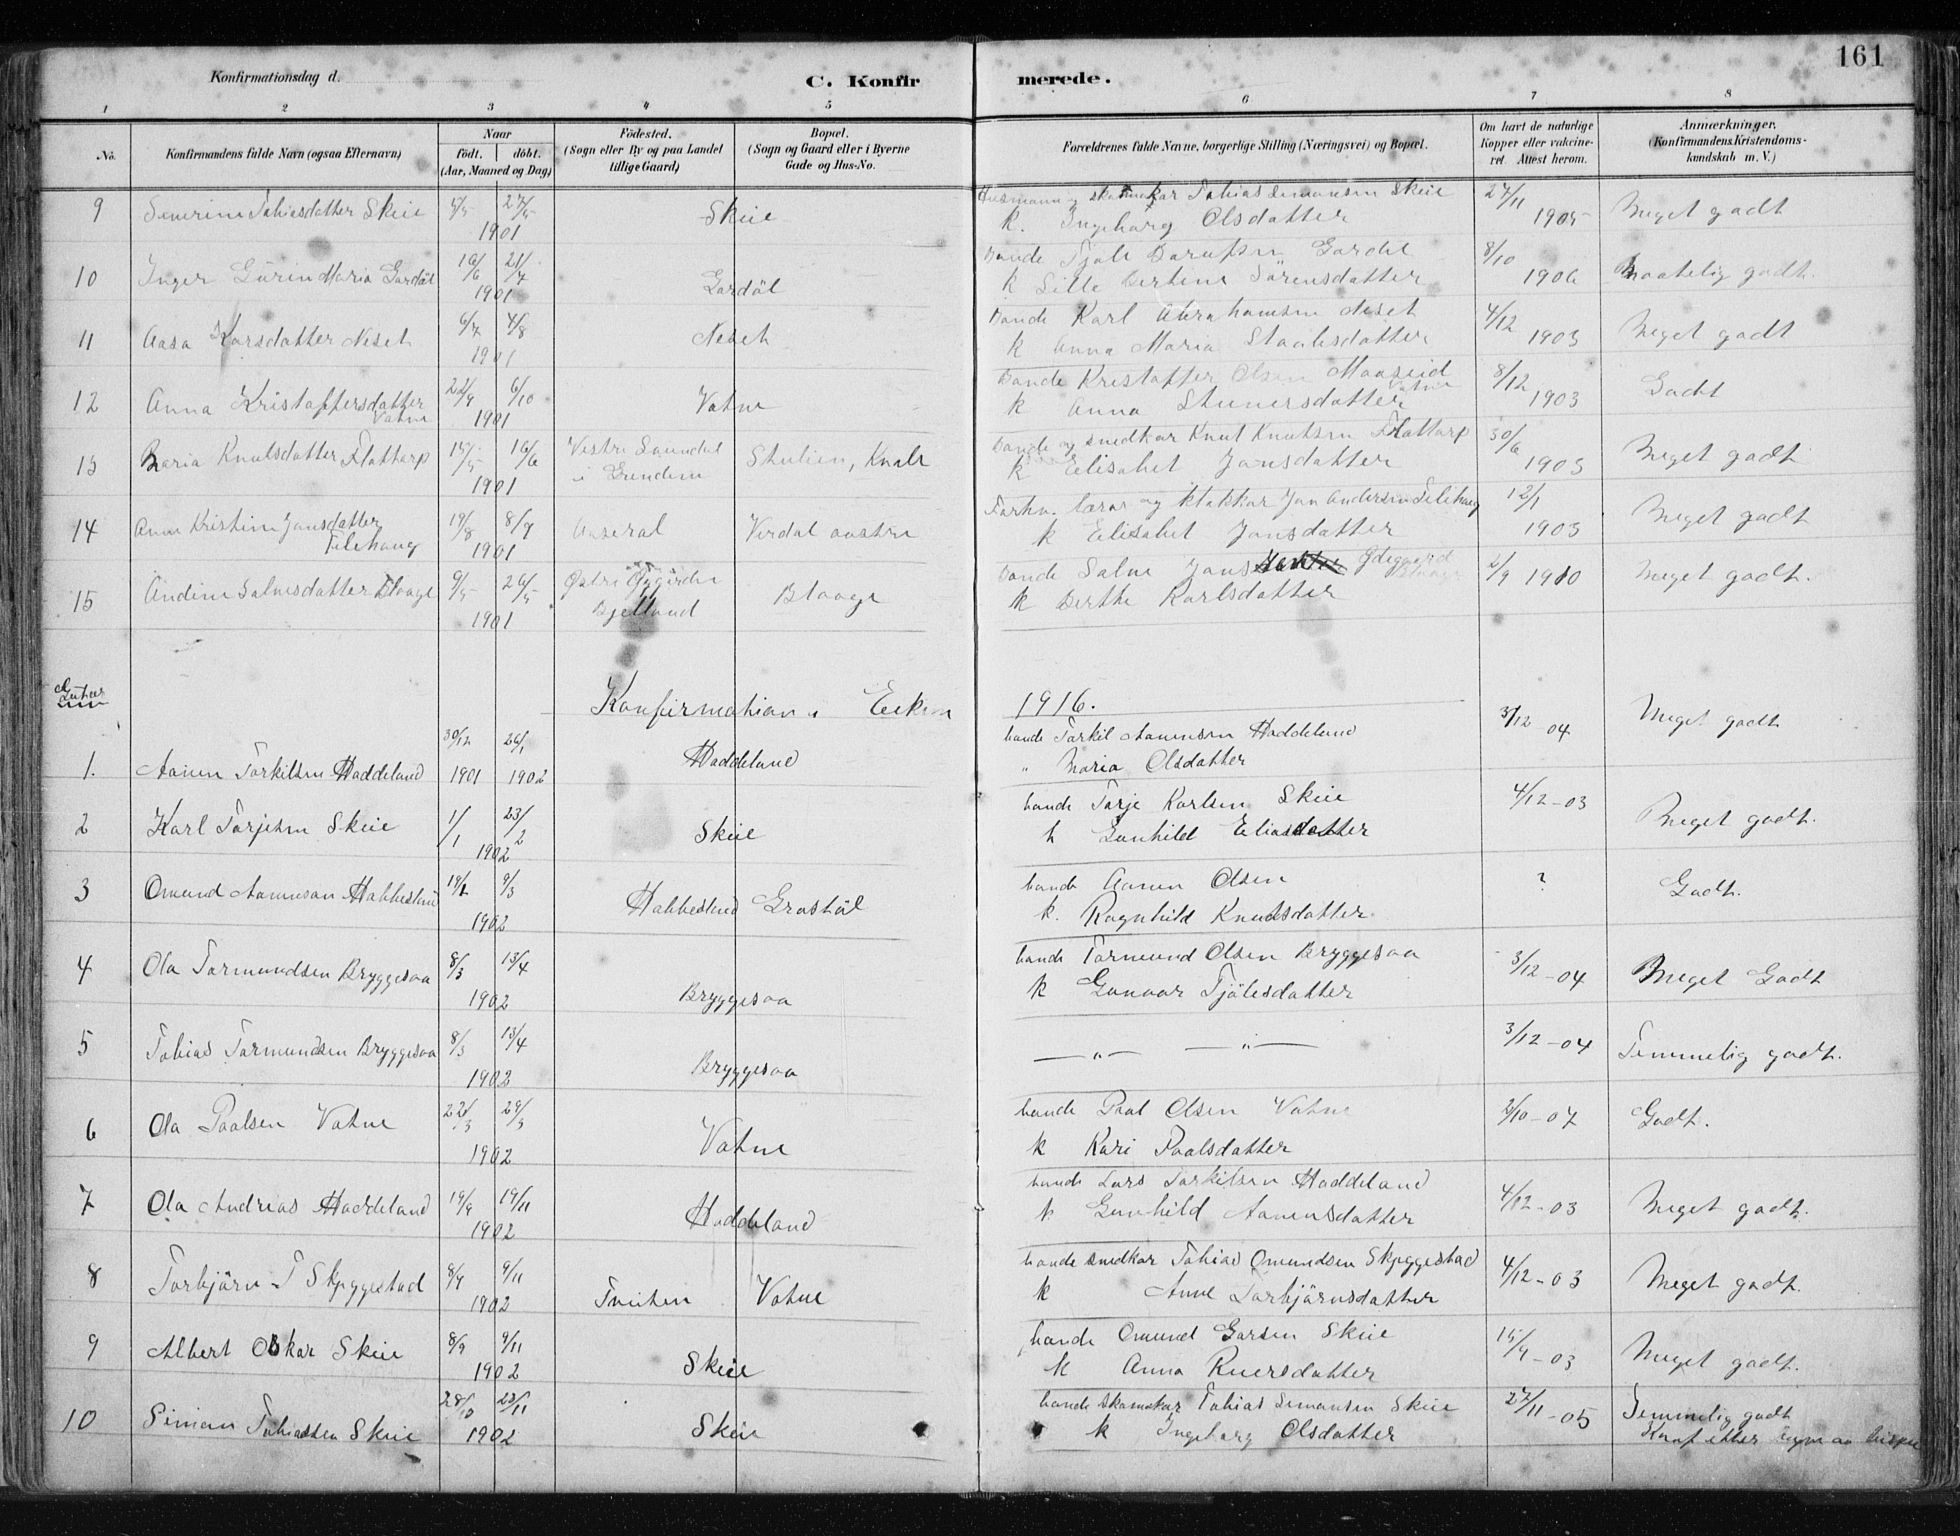 161
Konfirmationsdag d.
C. Konfirmerede.
1 2 3 4 5 6 7 8
No.
Konfirmandens fulde Navn (ogsaa Efternavn)
Naar
födt. döbt.
(Aar, Maaned og Dag)
Födested.
(Sogn eller By og paa Landet
tillige Gaard)
Bopæl.
(Sogn og Gaard eller i Byerne
Gade og Hus-No.
Forældrenes fulde Navne, borgerlige Stilling (Næringsvei) og Bopæl.
Om havt de naturlige
Kopper eller vakcine-
ret. Attest herom.
Anmærkninger.
(Konfirmandens Kristendoms-
kundskab m. V.)
9 Severine Tobiasdatter Skeie 27/5 1901 Skeie
Husmann og skomakar Tobias Simonsen Skeie 27/11 1905 Meget godt
k. Ingeborg Olsdatter
10 Inger Gurine Maria Gardöl 16/6 21/7 1901 Gardöl
Bonde Gardöl 8/10 1906 Maatelig godt.
k Sille Bertine Sörensdatter
11 Aasa Karsdatter Neset 6/7 4/8 1901 Neset
Bonde Karl Abrahamsen Neset 4/12 1903 Meget godt
k Anna Maria
12 Anna Kristoffersdatter 22/9 6/10 1901 Vatne
Vatne
Bonde Kristoffer Olsen Maaseid 8/12 1903 Godt
Vatne
k Anna
13 Maria Knutsdatter Flottorp 15/5 16/6 1901 Knabe
Bonde og snedkar Knut Knutsen Flottorp 30/6 1903 Meget godt
k Elisabet Jansdatter
14 Anne Kristine Jansdatter 19/8 8/9 1901 Aaseral
og Jan Andersen 12/1 1903 Meget godt
k Elisabet Jansdatter
15 Andine Salvesdatter 9/5 26/5 1901
Bjelland
Bonde Salve Jans Ödegaard 1910 Meget godt.
k Berthe Karlsdatter
Konfirmation i Eiken 1916.
1. Aanen Torkilsen Haddeland 30/12 1901 26/1 1902 Haddeland
bonde Torkil Aanensen Haddeland 3/12 04 Meget godt
" Maria Olsdatter
2 Karl Torjesen Skeie 1/1 23/2 1902 Skeie
bonde Torje Karlsen Skeie 4/12-03 Meget godt.
k Gunhild Eliasdatter
3 Omund Aanenson 9/3 1902
bonde Aanen Olsen ? Godt.
k. Ragnhild Knudsdatter
4 Ola Tormundsen Bryggesaa 8/3 13/4 1902 Bryggesaa
bonde Tormund Olsen Bryggesaa 3/12-04 Meget Godt
k Gunvor Tjölesdatter
5 Tobias Tormundsen Bryggesaa 8/3 13/4 1902 Bryggesaa
—„— —„— 3/12-04 Temmelig godt.
6 Ola Paalsen Vatne 29/3 1902 Vatne
bonde Paal Olsen Vatne 2/10-07 Godt.
k Kari Paalsdatter
7 Ola Andrias Haddeland 19/9 19/11 1902 Haddeland
bonde Lars Torkilsen Haddeland 4/12-03 Meget godt.
k Gunhild Aanensdatter
8 Torbjörn T Skyggestad 8/9 9/11 1902 Tveiten Vatne
bonde snedkar Tobias Omundsen Skyggestad 4/12-03 Meget godt.
k Anne Torbjörnsdatter
9 Albert Oskar Skeie 8/9 9/11 1902 Skeie
bonde Omund Skeie 15/9-03 Meget godt.
k Anna
10 Simon Tobiassen Skeie 28/10 23/11 1902 Skeie
bonde skomakar Tobias Simonsen Skeie 27/11-05 Temmelig godt
k Ingeborg Olsdatter Konf etter